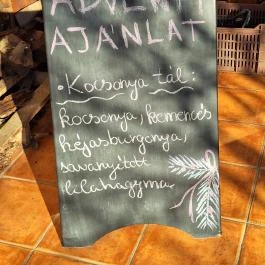 ADVENTI
AJÁNLAT
• Kocsonya tál:
kocsonya, kemencés
héjasburgonya,
savanyított
lilahagyma